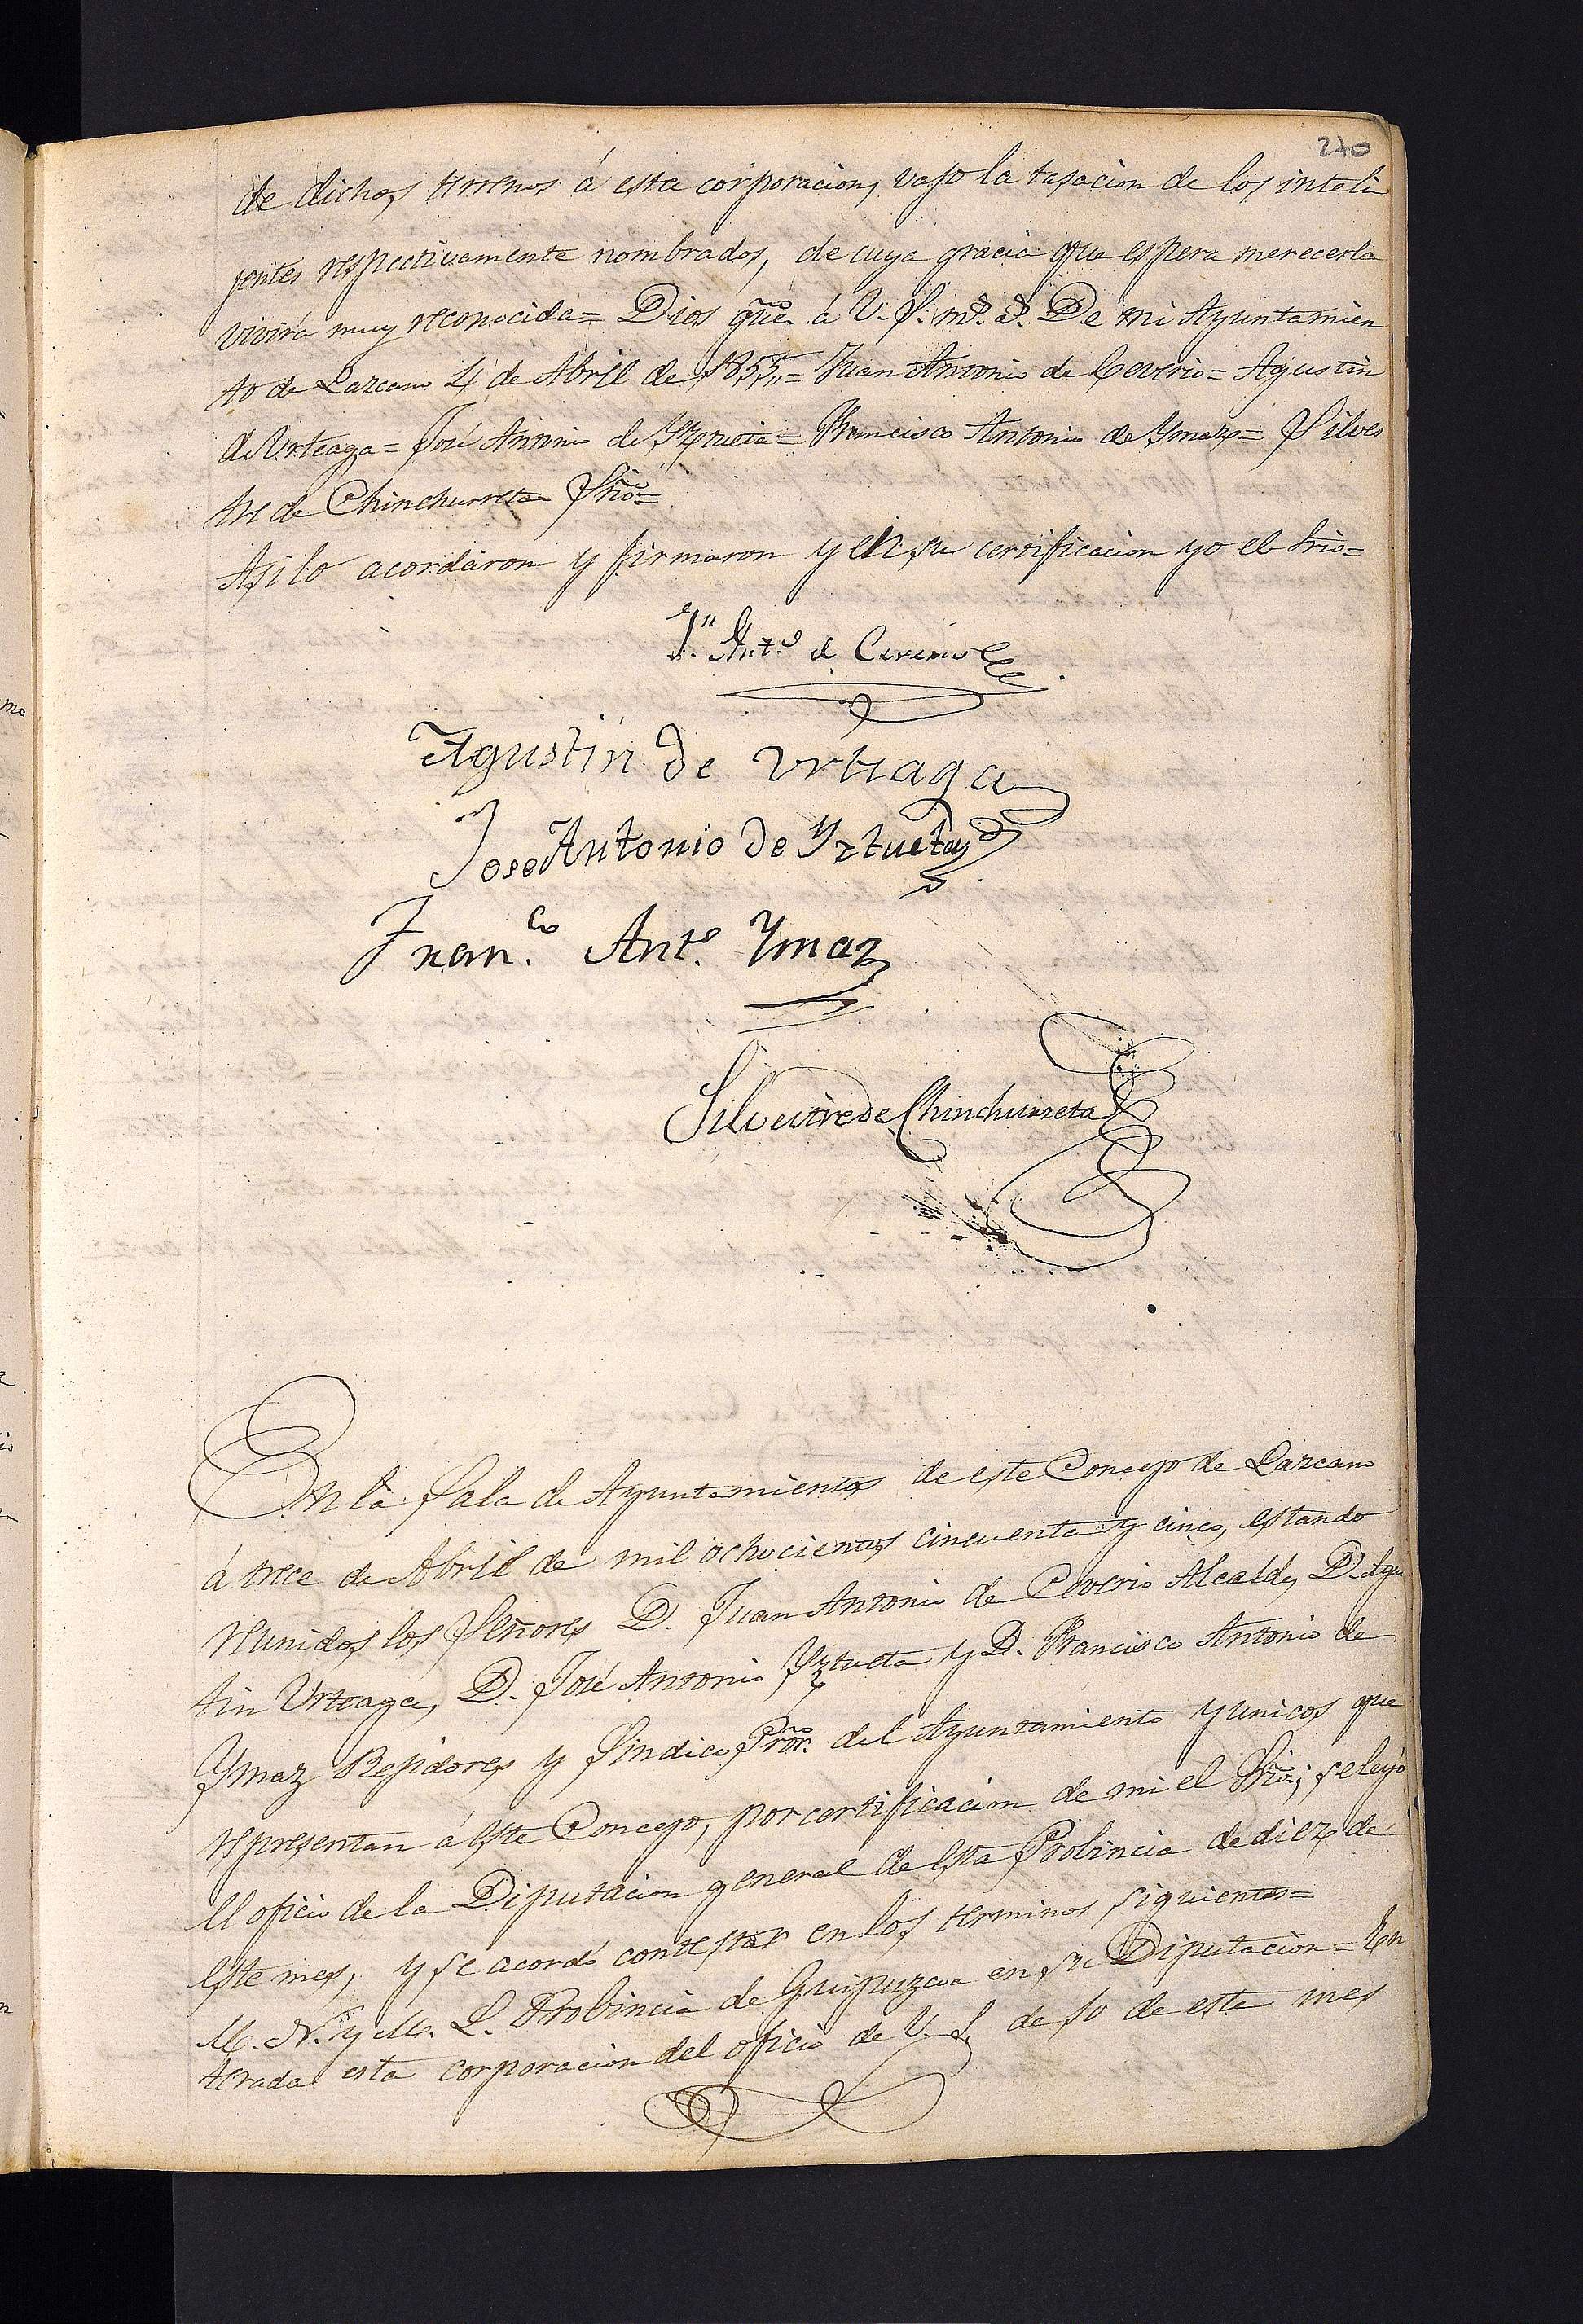 270
de dichos terrenos á esta corporacion, vajo la tasacion de los inteli
jentes respectivamente nombrados, de cuya gracia que espera merecerla
vivirá muy reconocida= Dios gue. á V. S. ms. as. De mi Ayuntamien
to de Lazcano 4 de Abril de 1855,,= Juan Antonio de Ceverio= Agustin
de Urteaga= José Antonio de Yztueta= Francisco Antonio de Ymaz= Silves
tre de Chinchurreta Srio=
Asi lo acordaron y firmaron y en su certificacion yo el Srio=
Jn. Anto. de Ceverio
Agustin de Urteaga
Jose Antonio de Yztueta
Fran.co Anto. Ymaz
Silvestre de Chinchurreta
En la Sala de Ayuntamientos de este Concejo de Lazcano
á trece de Abril de mil ochocientos cincuenta y cinco, estando
reunidos los Señores D. Juan Antonio de Ceverio Alcalde, D. Agus
tin Urteaga, D. José Antonio Yztueta y D. Francisco Antonio de
Ymaz Rejidores y Sindico Pror. del Ayuntamiento y unicos que
representan á este Concejo, por certificacion de mi el Srio; se leyó
el oficio de la Diputacion general de esta Probincia de diez de
este mes, y se acordó contestar en los terminos siguientes=
M. N. y M. L. Probincia de Guipuzcoa en su Diputacion= En
terada esta corporacion del oficio de V. S. de 10 de este mes